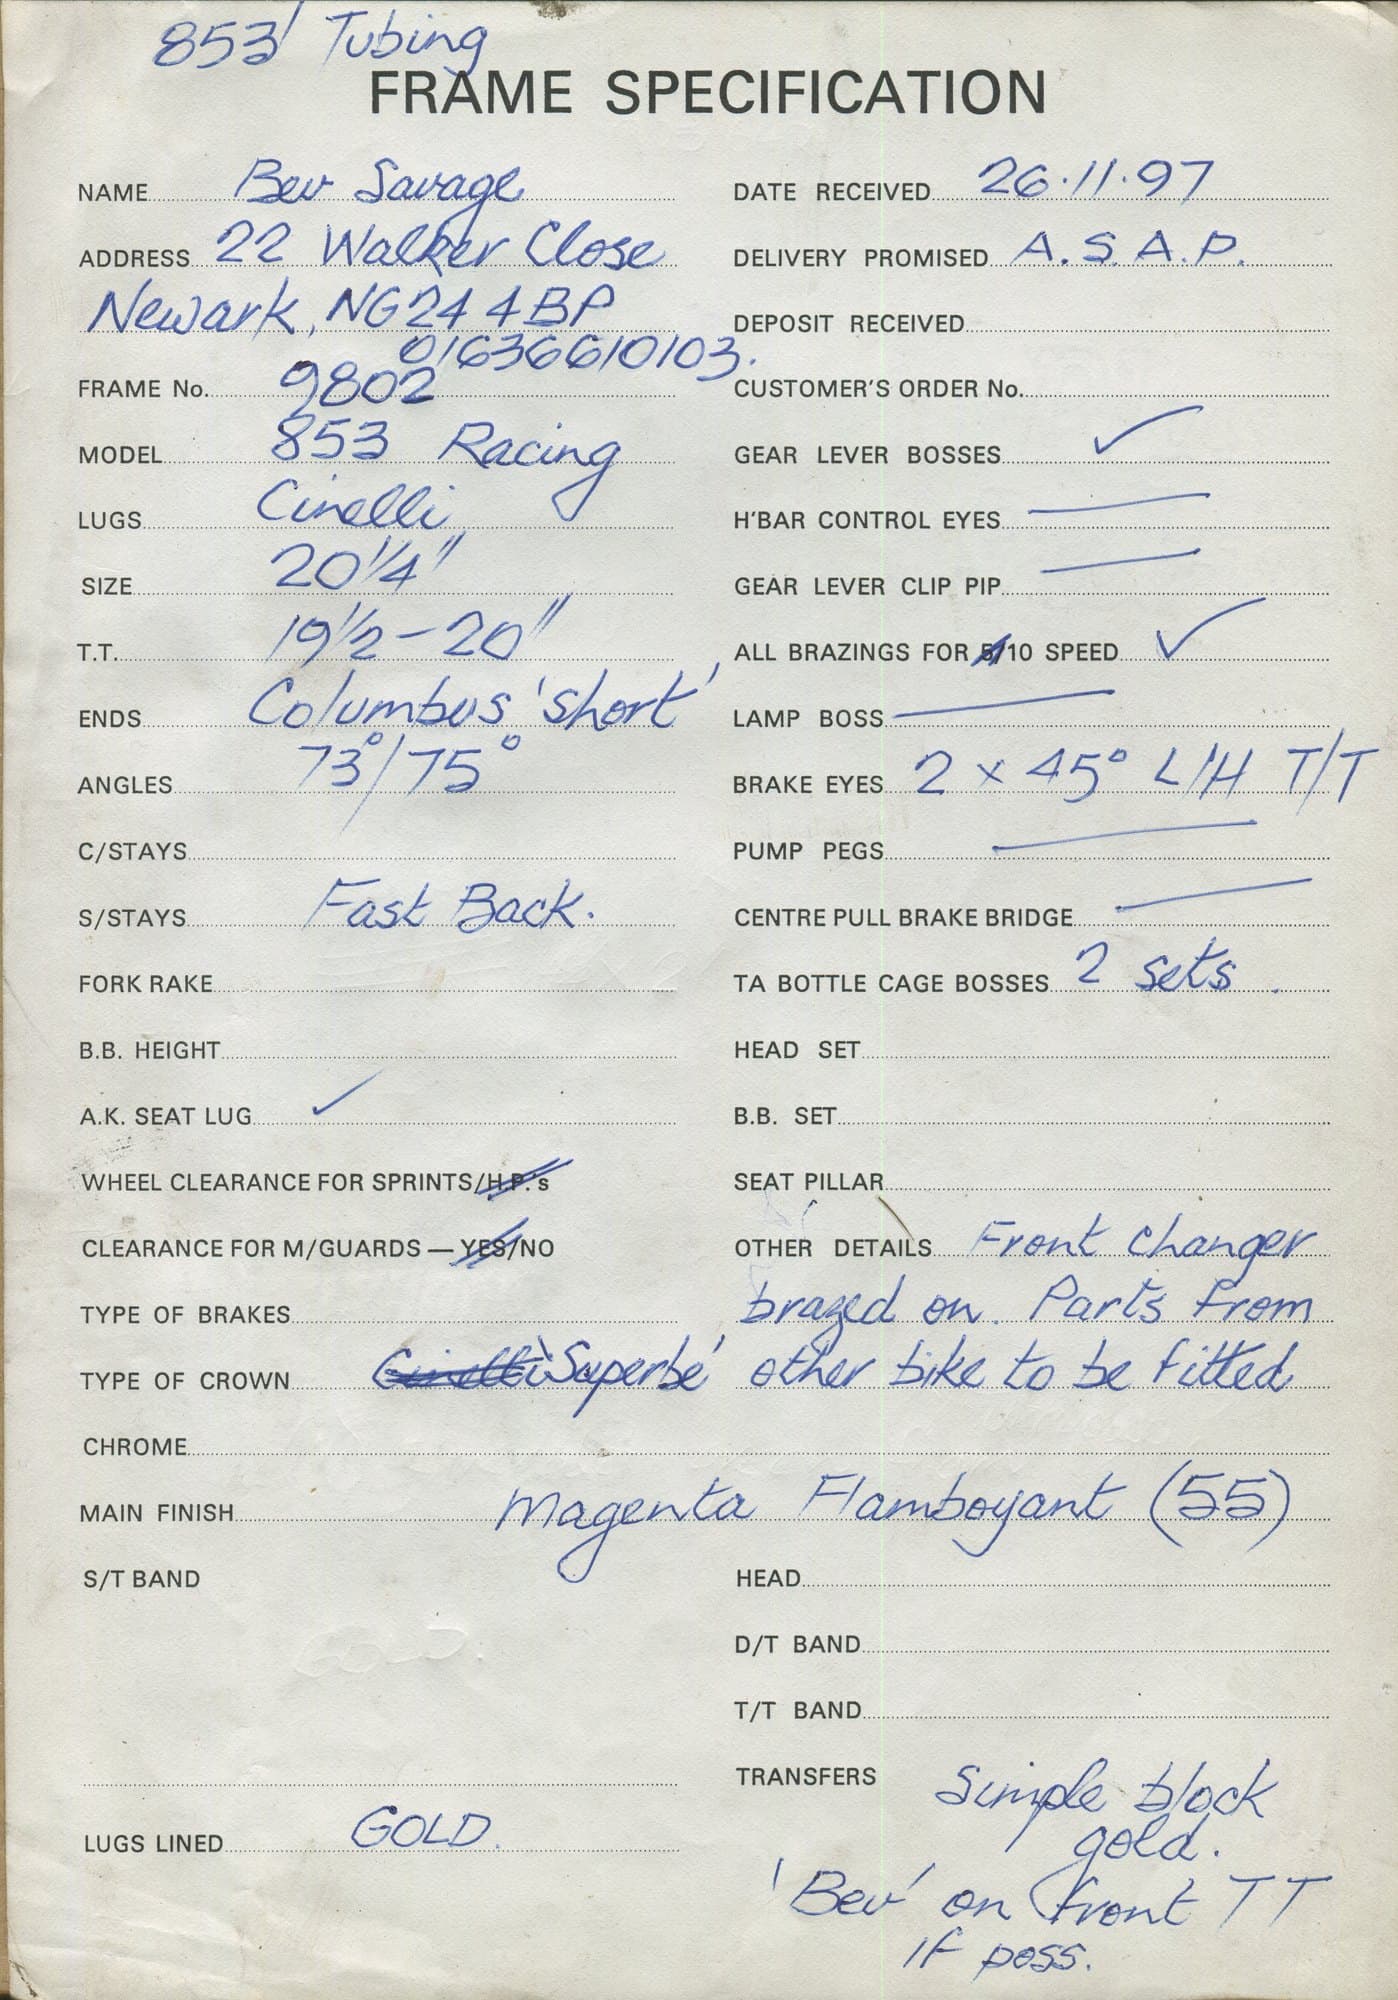 853' Tubing
FRAME SPECIFICATION
NAME Bev Savage
ADDRESS 22 Walker Close
Newark, NG24 4BP
01636610103.
FRAME No. 9802
MODEL 853 Racing
LUGS Cinelli
SIZE 20 1/4"
T.T. 19 1/2 - 20"
ENDS Columbus 'short'
ANGLES 73°/75°
C/STAYS
S/STAYS Fast Back.
FORK RAKE
B.B. HEIGHT
A.K. SEAT LUG ✓
WHEEL CLEARANCE FOR SPRINTS/H.P.'s
CLEARANCE FOR M/GUARDS — YES/NO
TYPE OF BRAKES
TYPE OF CROWN Cinelli 'Superbe'
DATE RECEIVED 26.11.97
DELIVERY PROMISED A.S.A.P.
DEPOSIT RECEIVED
CUSTOMER'S ORDER No.
GEAR LEVER BOSSES ✓
H'BAR CONTROL EYES —
GEAR LEVER CLIP PIP —
ALL BRAZINGS FOR 5/10 SPEED ✓
LAMP BOSS —
BRAKE EYES 2 x 45° L/H T/T
PUMP PEGS —
CENTRE PULL BRAKE BRIDGE —
TA BOTTLE CAGE BOSSES 2 sets.
HEAD SET
B.B. SET
SEAT PILLAR
OTHER DETAILS Front changer
brazed on. Parts from
other bike to be fitted
CHROME
MAIN FINISH Magenta Flamboyant (55)
S/T BAND
LUGS LINED GOLD.
HEAD
D/T BAND
T/T BAND
TRANSFERS Simple block
gold.
'Bev' on front TT
if poss.